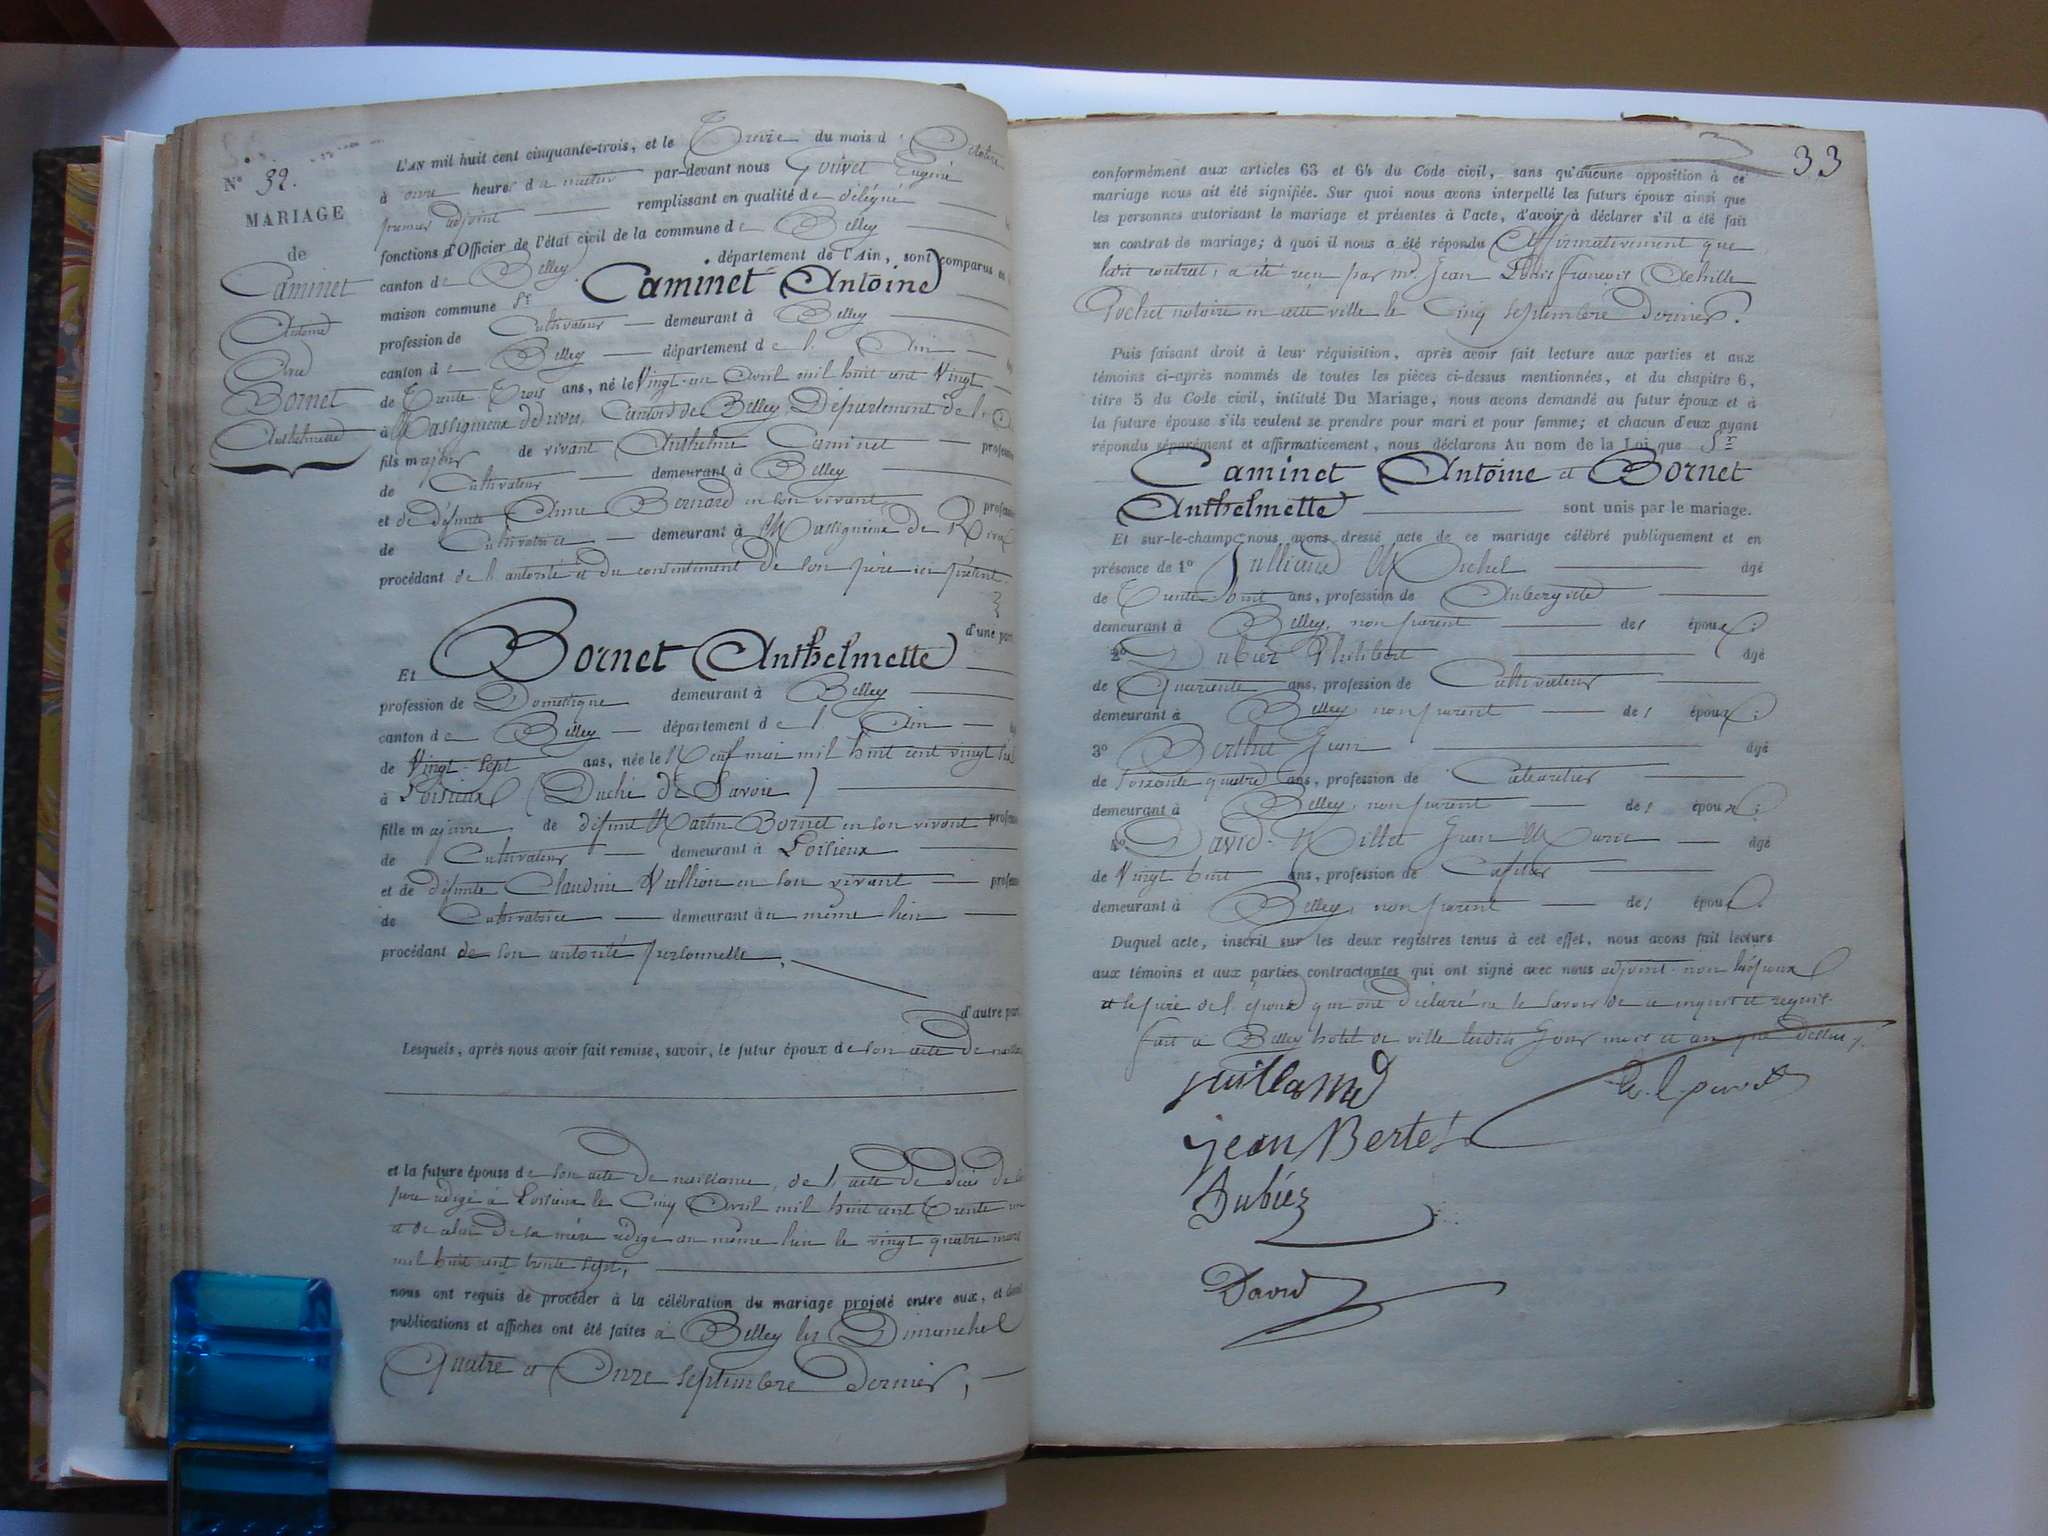 N° 32.
MARIAGE
de
Caminet
Antoine
Avec
Bornet
Anthelmette
L'AN mil huit cent cinquante-trois, et le Treize du mois d'Octobre
à onze heures du matin par-devant nous Gouvet Eugène
premier adjoint remplissant en qualité de délégué
fonctions d'Officier de l'état civil de la commune de Belley
canton de Belley département de l'Ain, sont comparus en
maison commune Sr Caminet Antoine
profession de Cultivateur demeurant à Belley
canton de Belley département de l'Ain
de Trente Trois ans, né le Vingt-un Avril mil huit cent Vingt
à Massignieux de rives, Canton de Belley, Département de l'
fils majeur de vivant Anthelme Caminet profession
de Cultivateur demeurant à Belley
et de défunte Bernard en son vivant profession
de Cultivatrice demeurant à Massignieux de Rives
procédant de l'autorité et du contentement de son père ici présent.
d'une part
Et Bornet Anthelmette
profession de Domestique demeurant à Belley
canton de Belley département de l'Ain
de Vingt-sept ans, née le Neuf mai mil huit cent vingt six
à Loisieux (Duché de Savoie)
fille majeure de défunt Martin Bornet en son vivant profession
de Cultivateur demeurant à Loisieux
et de défunte Claudine Vullion en son vivant profession
de Cultivatrice demeurant au même lieu
procédant de son autorité personnelle,
d'autre part
Lesquels, après nous avoir fait remise, savoir, le futur époux de son acte de naissance
et la future épouse de son acte de naissance, de l'acte de décès de son
père rédigé à Loisieux le Cinq Avril mil huit cent Trente un
et de celui de sa mère rédigé au même lieu le vingt quatre mars
mil huit cent trente sept,
nous ont requis de procéder à la célébration du mariage projeté entre eux, et dont
publications et affiches ont été faites à Belley les Dimanches
Quatre et Onze septembre dernier,
33
conformément aux articles 63 et 64 du Code civil, sans qu'aucune opposition à ce
mariage nous ait été signifiée. Sur quoi nous avons interpellé les futurs époux ainsi que
les personnes autorisant le mariage et présentes à l'acte, d'avoir à déclarer s'il a été fait
un contrat de mariage; à quoi il nous a été répondu Affirmativement que
ledit contrat, a été reçu par me Jean Louis françois Achille
Pochet notaire en cette ville le Cinq septembre dernier.
Puis faisant droit à leur réquisition, après avoir fait lecture aux parties et aux
témoins ci-après nommés de toutes les pièces ci-dessus mentionnées, et du chapitre 6,
titre 5 du Code civil, intitulé Du Mariage, nous avons demandé au futur époux et à
la future épouse s'ils veulent se prendre pour mari et pour femme; et chacun d'eux ayant
répondu séparément et affirmativement, nous déclarons Au nom de la Loi que Sr
Caminet Antoine et Bornet
Anthelmette sont unis par le mariage.
Et sur-le-champ nous avons dressé acte de ce mariage célébré publiquement et en
présence de 1° Julliand Michel âgé
de Trente-huit ans, profession de Aubergiste
demeurant à Belley, non parent des époux;
2° Dubiez Philibert âgé
de Quarante ans, profession de Cultivateur
demeurant à Belley, non parent des époux;
3° Berthet Jean âgé
de soixante quatre ans, profession de Cabaretier
demeurant à Belley, non parent des époux;
4° David-Millet Jean Marie âgé
de Vingt huit ans, profession de Cafetier
demeurant à Belley, non parent des époux.
Duquel acte, inscrit sur les deux registres tenus à cet effet, nous avons fait lecture
aux témoins et aux parties contractantes qui ont signé avec nous adjoint non les époux
et le père de l'époux qui ont déclaré ne le savoir de ce enquis et requis.
fait à Belley hôtel de ville lesdits Jour mois et an que dessus.
jean Bertet
Dubiez
David